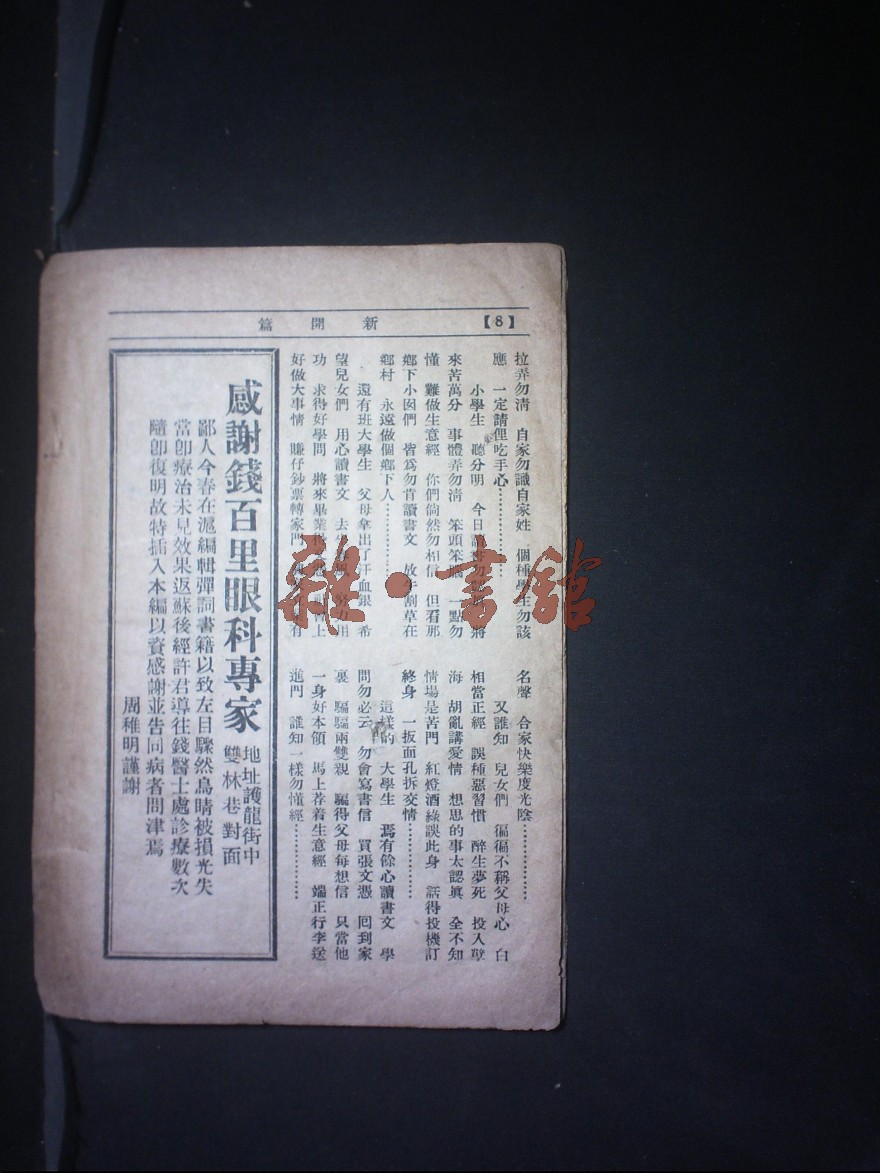 【8】
新開篇
拉弄勿淸　自家勿識自家姓　個種學生勿該
應　一定請俚吃手心…………
小學生　聽分明　今日讀書勿　將
來苦萬分　事體弄勿淸　笨頭笨腦　一點勿
懂　難做生意經　你們倘然勿相信　但看那
鄉下小囡們　皆爲勿肯讀書文　放牛割草在
鄉村　永遠做個鄉下人…………
還有班大學生　父母拿出了汗血銀　希
望兒女們　用心讀書文　去　努力用
功　求得好學問　將來畢業　上
好做大事情　賺仔鈔票轉家門　有
名聲　合家快樂度光陰…………
又誰知　兒女們　徧徧不稱父母心　白
相當正經　誤種惡習慣　醉生夢死　投入孽
海　胡亂講愛情　想思的事太認眞　全不知
情場是苦門　紅燈酒綠談此身　話得投機訂
終身　一扳面孔拆交情…………
這樣的　大學生　焉有餘心讀書文　學
問勿必云　勿會寫書信　買張文憑　囘到家
裏　騙騙兩雙親　騙得父母每想信　只當他
一身好本領　馬上荐着生意經　端正行李送
進門　誰知一樣勿懂經…………
感謝錢百里眼科專家
地址護龍街中
雙林巷對面
鄙人今春在滬編輯彈詞書籍以致左目驟然烏睛被損光失
當卽療治未見效果返蘇後經許君導往錢醫士處診療數次
隨卽復明故特插入本編以資感謝並告同病者問津焉
周稚明謹謝
雜·書館